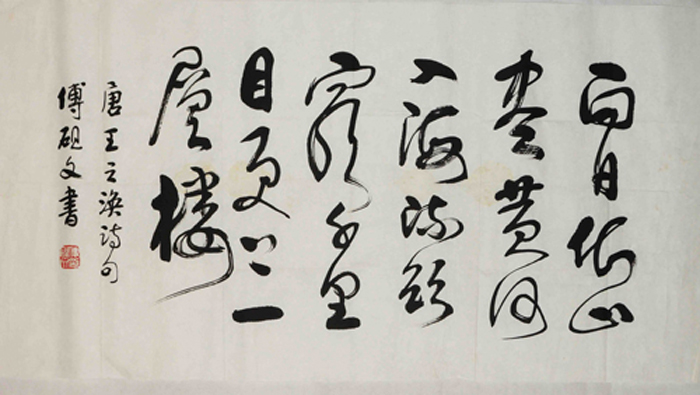 白日依山
尽黄河
入海流欲
穷千里
目更上一
层楼
唐王之涣诗句
傅砚文书